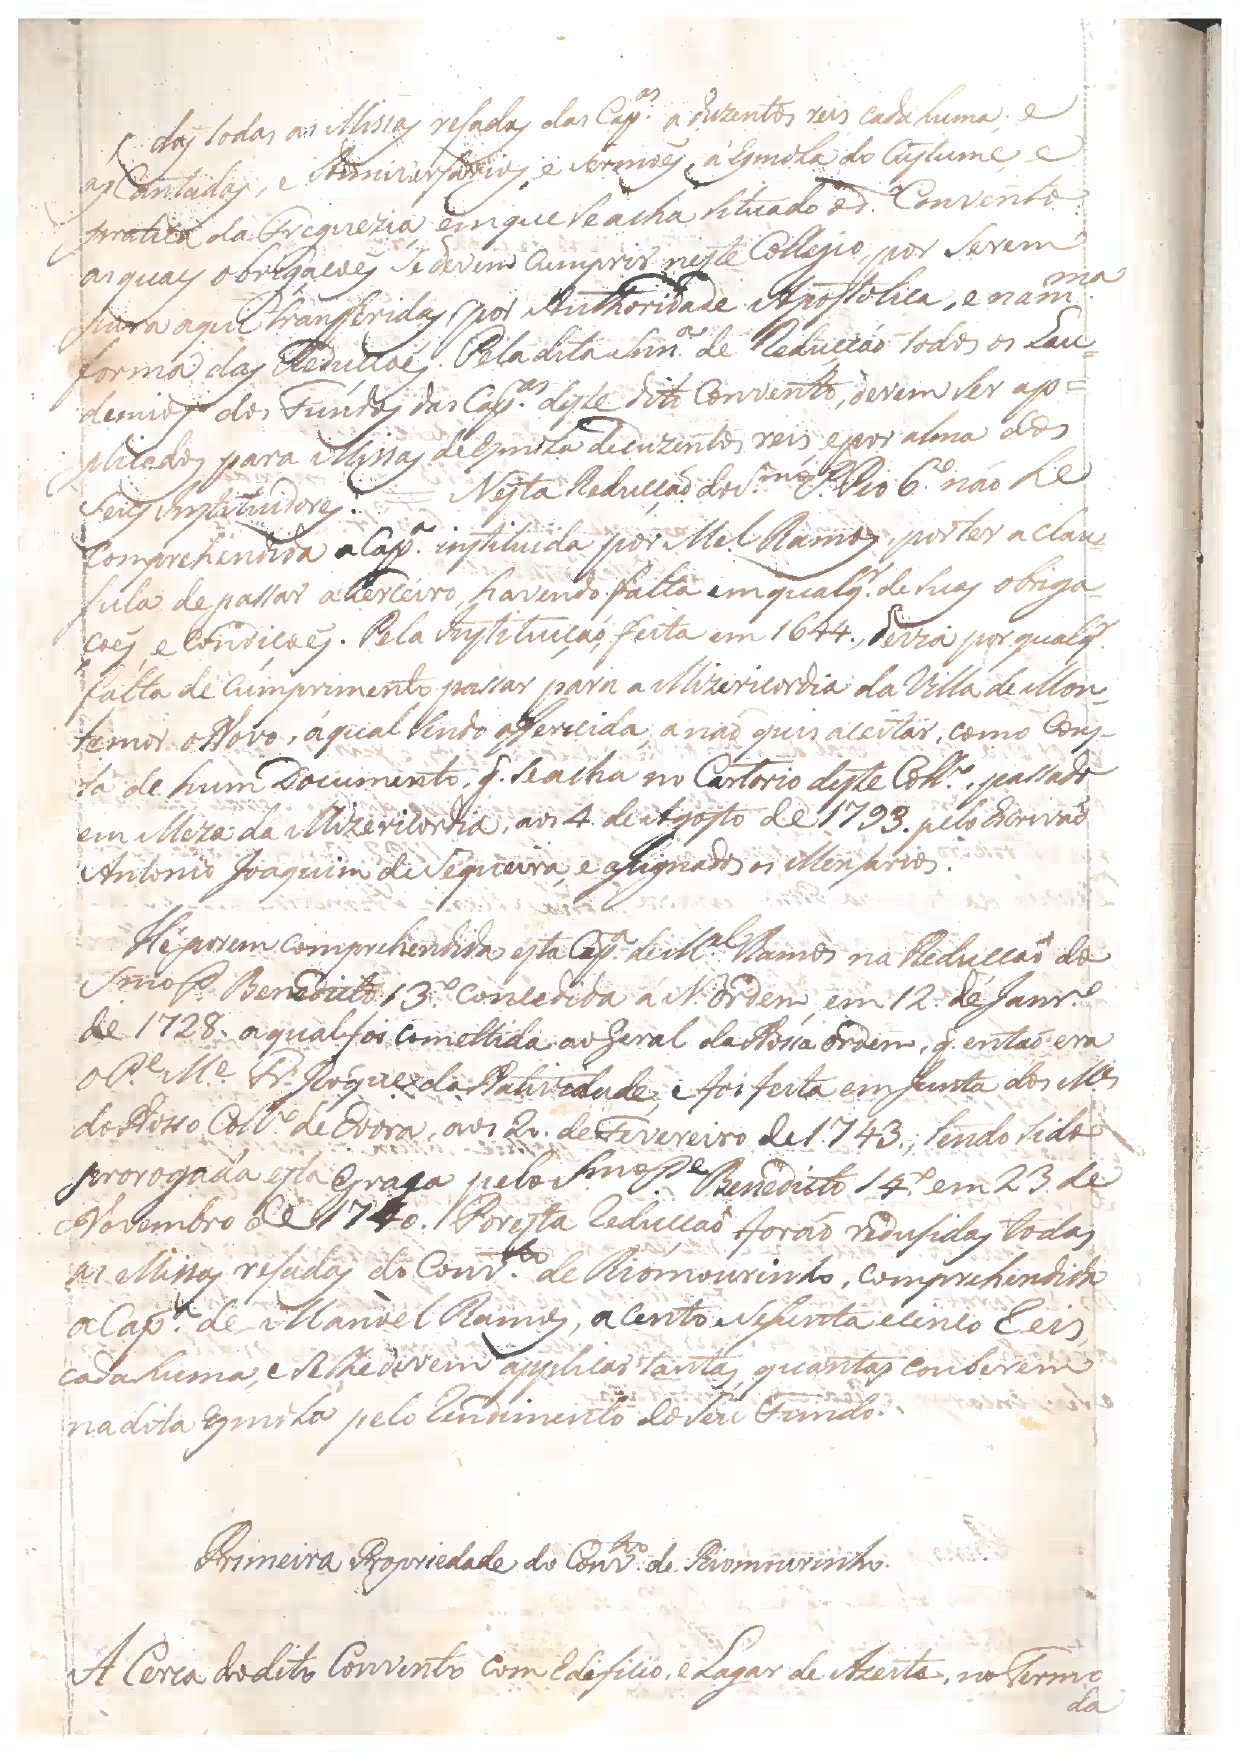 das todas as Missas resadas das Cap.as a duzentos reis cada huma, e
as Cantadas, e Anniversarios, e Sermoẽs, á Esmola do Custume, e
pratica da Freguezia em que se acha situado o d. Convento
as quaes obrigacoẽs se devem cumprir neste Collegio, por serem
para aqui transferidas por Authoridade Apostolica, e na m.ma
forma das Reducoẽs. Pela dita de Reducçaõ todos os Lau=
demios dos Fundos das Cap.as deste dito Convento, devem ser ap=
plicados para Missas de Esmola de duzentos reis e por alma dos
seus Instituidores. = Nesta Reducçaõ do S.mo P. Pio 6.o naõ he
comprehendida a Cap.a instituida por M.el Ramos, por ter a clau=
sula de passar a terceiro, havendo falta em qualq.r de suas obriga=
coẽs, e condicoẽs. Pela Instituiçaõ, feita em 1644., devia por qualq.r
falta de cumprimento passar para a Mizericordia da Villa de Mon=
temor o Novo, á qual sendo offerecida, a naõ quis aceitar, como Cons=
ta de hum Documento, q. se acha no Cartorio deste Coll.o, passado
em Meza da Mizericordia, aos 4 de Agosto de 1793. pelo Escrivaõ
Antonio Joaquim de Sequeira, e assignados os Mesarios.
Hé porem comprehendida esta Cap.a de M.al Ramos na Reducçaõ do
Smo P. Benedicto 13.o concedida á N. Ordem, em 12 de Janr.o
de 1728. a qual foi comettida ao Geral da Nossa Ordem, q. entaõ era
o P.e M.e Fr. Roque da Natividade, e foi feita em Junta dos M.es
do Nosso Coll.o de Evora, aos 20. de Fevereiro de 1743., sendo sido
prorogada esta Graça pelo Smo P.e Benedicto 14.o em 23 de
Novembro de 1740. Por esta Reducçaõ foraõ redusidas todas
as Missas resadas do Conv.to de Riomourinho, comprehendida
a Cap.a de Manoel Ramos, a cento e sesenta e cinco Reis,
cada huma, e se lhe devem applicar tantas, quantas couberem
na dita Esmola pelo Rendimento do seu Fundo.
Primeira Propriedade do Conv.to de Riomourinho.
A Cerca do dito Convento com Edeficio, e Lagar de Azeite, no Termo
da